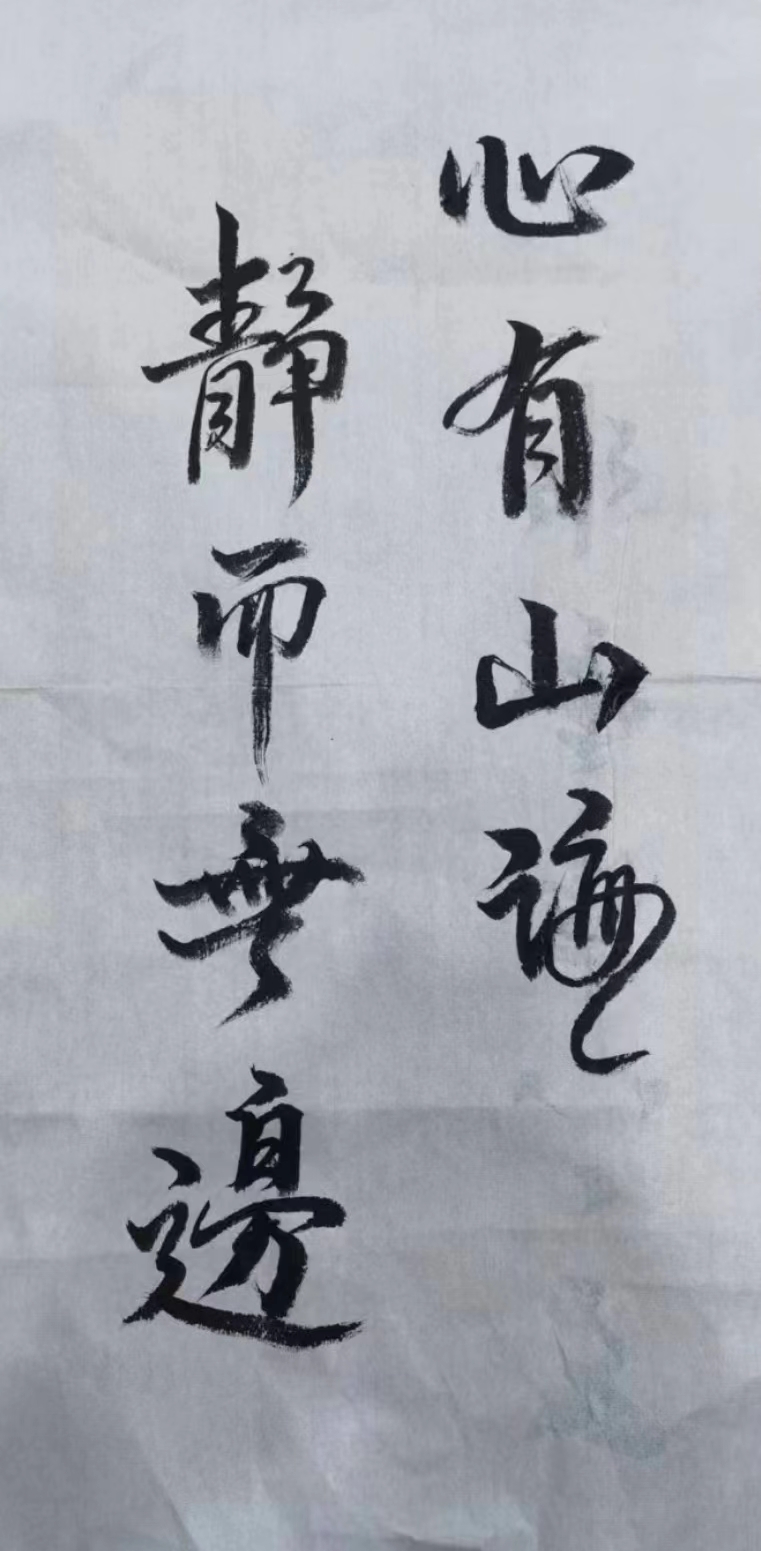 心有山
靜而無邊